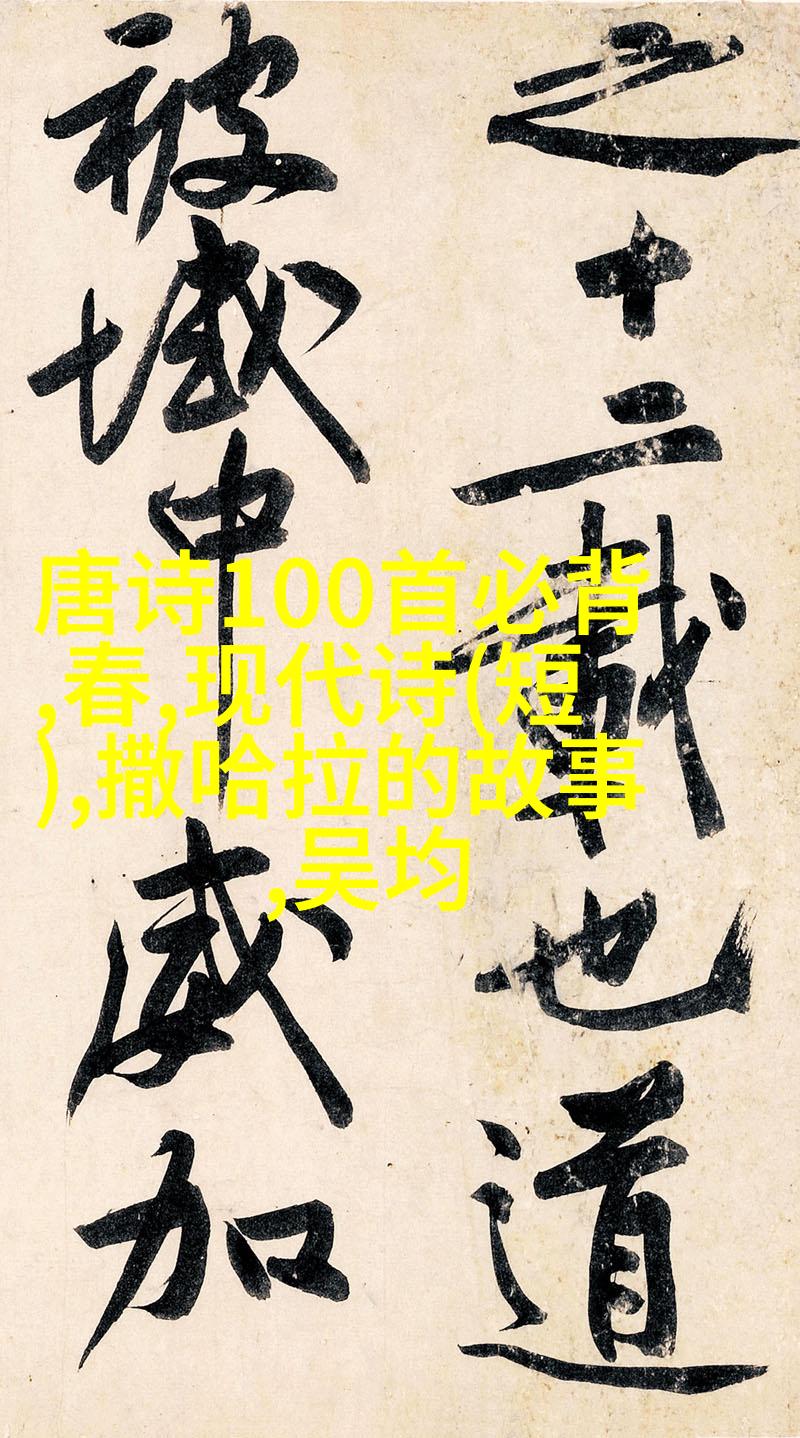 之十二載也道
被域中威加
唐诗100首必背
,春,现代诗(短
),撒哈拉的故事
,吴均